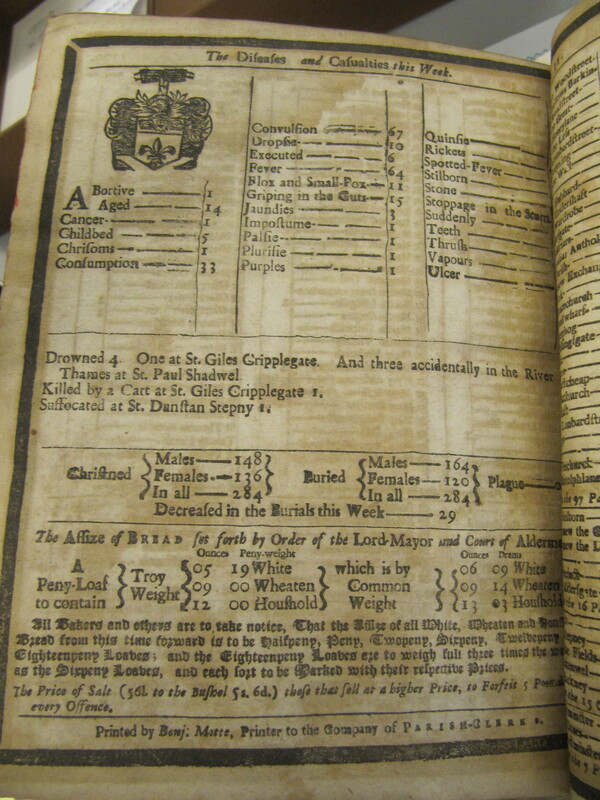 The Diseases and Casualties this Week.
Abortive 1
Aged 14
Cancer 1
Childbed 5
Chrisoms 1
Consumption 33
Convulsion 67
Dropsie 10
Executed 6
Fever 64
Flox and Small-Pox 11
Griping in the Guts 15
Jaundies 3
Impostume 1
Palsie 1
Plurisie 1
Purples 1
Quinsie
Rickets
Spotted-Fever
Stilborn
Stone
Stoppage in the Stom
Suddenly
Teeth
Thrush
Vapours
Ulcer
Drowned 4. One at St. Giles Cripplegate. And three accidentally in the River
Thames at St. Paul Shadwel
Killed by a Cart at St. Giles Cripplegate 1.
Suffocated at St. Dunstan Stepny 1.
Christned { Males 148 Females 136 In all 284 } Buried { Males 164 Females 120 In all 284 } Plague
Decreased in the Burials this Week 29
The Assize of BREAD set forth by Order of the Lord-Mayor and Court of Alderm
Ounces Peny-weight Ounces Drams
A 05 19 White which is by 06 09 White
Peny-Loaf Troy 09 00 Wheaten Common 09 14 Wheaten
to contain Weight 12 00 Houshold Weight 13 03 Houshold
All Bakers and others are to take notice, That the Assize of all White, Wheaten and Hous
Bread from this time forward is to be Halfpeny, Peny, Twopeny, Sixpeny, Twelvepeny
Eighteenpeny Loaves; and the Eighteenpeny Loaves are to weigh full three times the w
as the Sixpeny Loaves, and each sort to be Marked with their respective Prices.
The Price of Salt (56l. to the Bushel 5s. 6d.) those that sell at a higher Price, to Forfeit 5 Po
every Offence.
Printed by Benj. Motte, Printer to the Company of PARISH-CLERKS.